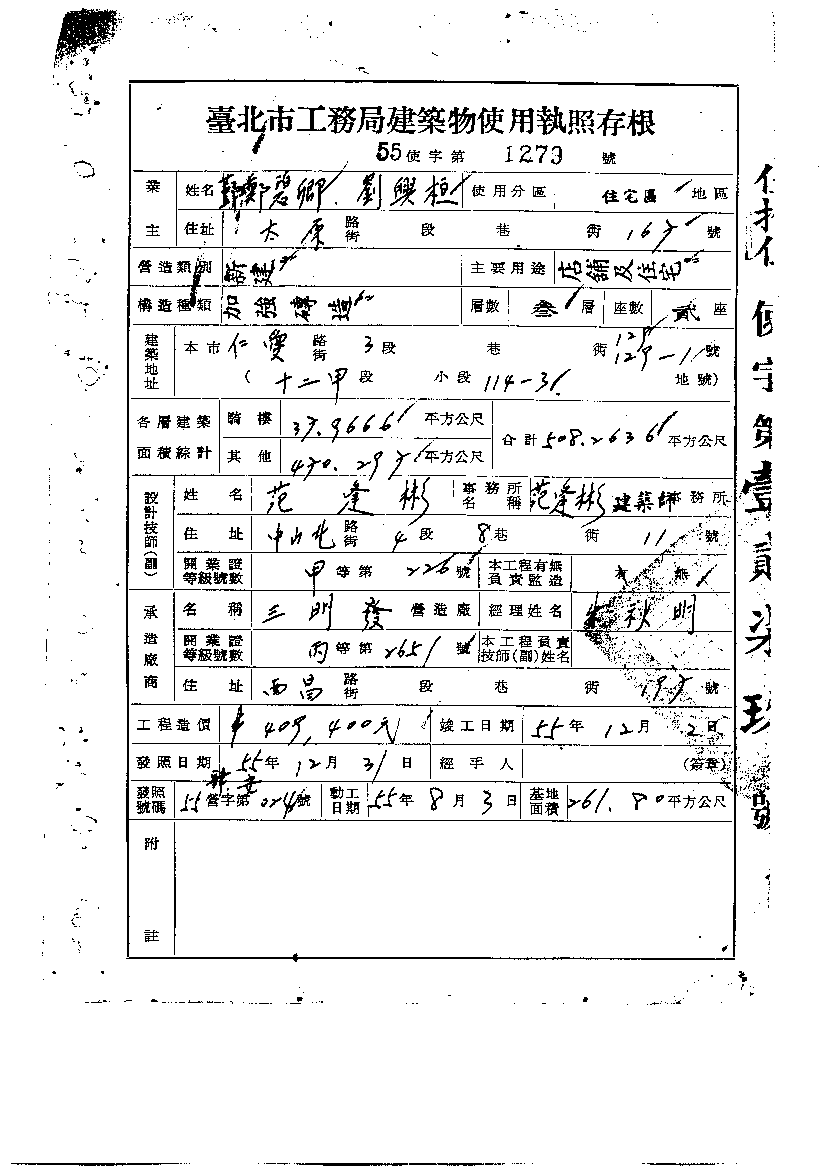 臺北市工務局建築物使用執照存根
55 使字第 1279 號
業主 姓名 鄭碧卿、劉興桓 使用分區 住宅區 地區
住址 太原 路街 段 巷 街 號
營造類別 新建 主要用途 店舖及住宅
構造種類 加強磚造 層數 叁 層 座數 貳 座
建築地址 本市 仁愛 路街 3 段 巷 街 129 129-1 號
( 十二甲 段 小段 114-31 地號)
各層建築面積綜計 騎樓 37.9666 平方公尺 合計 508.2636 平方公尺
其他 470.297 平方公尺
設計技師(副) 姓名 范逢彬 事務所名稱 范逢彬 建築師 事務所
住址 中山北 路街 4 段 8 巷 街 11 號
開業證等級號數 甲 等第 226 號 本工程有無負責監造 有 無
承造廠商 名稱 三明發 營造廠 經理姓名 朱秋明
開業證等級號數 丙 等第 2651 號 本工程負責技師(副)姓名
住址 西昌 路街 段 巷 街 號
工程造價 409,400元 竣工日期 55 年 12 月 2 日
發照日期 55 年 12 月 31 日 經手人 (簽章)
發照號碼 55 營字第 024 號 動工日期 55 年 8 月 3 日 基地面積 261.80 平方公尺
附註
使字第壹貳柒玖號